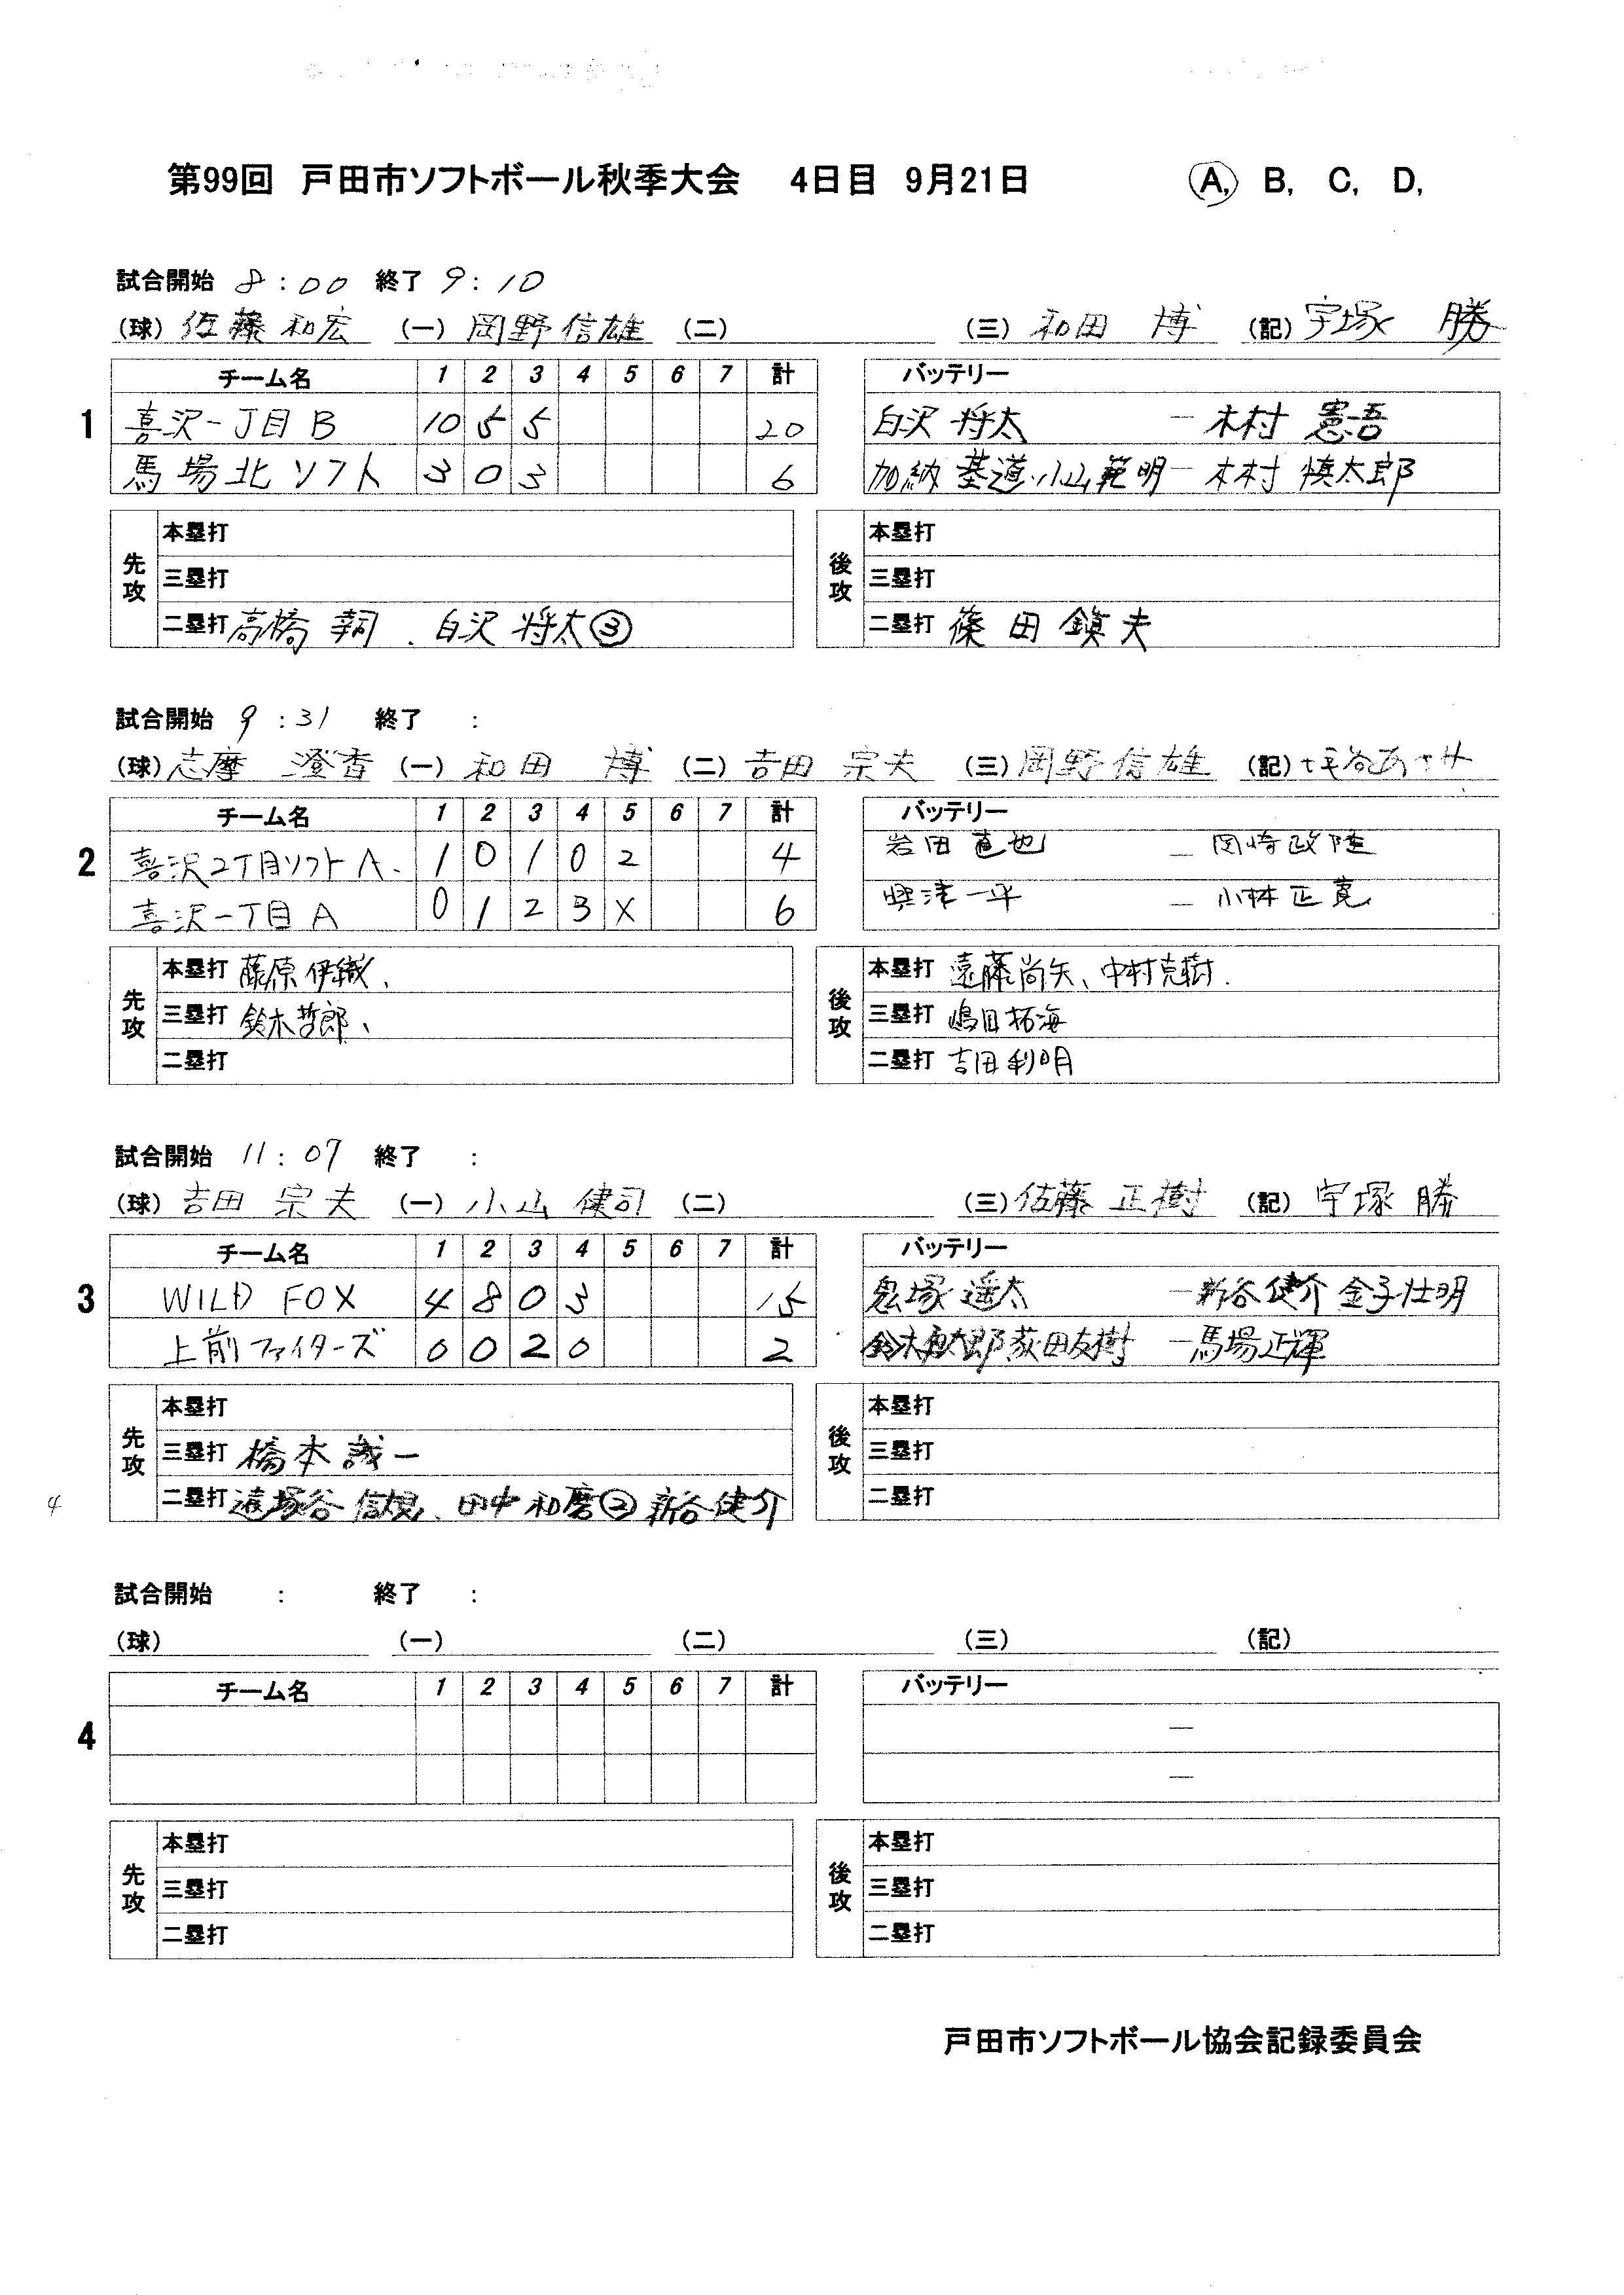 第99回 戸田市ソフトボール秋季大会 4日目 9月21日 A, B, C, D,
試合開始 8:00 終了 9:10
(球) 佐藤 和宏 (一) 岡野 信雄 (二) (三) 和田 博 (記) 宇塚 勝
チーム名 1 2 3 4 5 6 7 計 バッテリー
1
喜沢一丁目 B 10 5 5 20 白沢 将太 － 木村 憲吾
馬場北ソフト 3 0 3 6 加納 基道、小山 範明 － 木村 慎太郎
先攻 後攻
本塁打 本塁打
三塁打 三塁打
二塁打 高橋 、白沢 将太③ 二塁打 篠田 鎭夫
試合開始 9:31 終了 :
(球) 志摩 澄香 (一) 和田 博 (二) 吉田 宗夫 (三) 岡野 信雄 (記)
チーム名 1 2 3 4 5 6 7 計 バッテリー
2
喜沢2丁目ソフトA. 1 0 1 0 2 4 岩田 直也 － 岡崎 政隆
喜沢一丁目 A 0 1 2 3 X 6 興津 一平 － 小林 正寛
先攻 後攻
本塁打 藤原 伊織、 本塁打 遠藤尚矢、中村克樹.
三塁打 鈴木哲郎、 三塁打 嶋田拓海
二塁打 二塁打 吉田利明
試合開始 11:07 終了 :
(球) 吉田 宗夫 (一) 小山 健司 (二) (三) 佐藤 正樹 (記) 宇塚 勝
チーム名 1 2 3 4 5 6 7 計 バッテリー
3
WILD FOX 4 8 0 3 15 鬼塚 遥太 － 新谷 健介 金子壮明
上前ファイターズ 0 0 2 0 2 荻田友樹 － 馬場正輝
先攻 後攻
本塁打 本塁打
三塁打 橋本 誠一 三塁打
4
二塁打 遠塚谷 、田中 和磨② 新谷健介 二塁打
試合開始 : 終了 :
(球) (一) (二) (三) (記)
チーム名 1 2 3 4 5 6 7 計 バッテリー
4
－
－
先攻 後攻
本塁打 本塁打
三塁打 三塁打
二塁打 二塁打
戸田市ソフトボール協会記録委員会